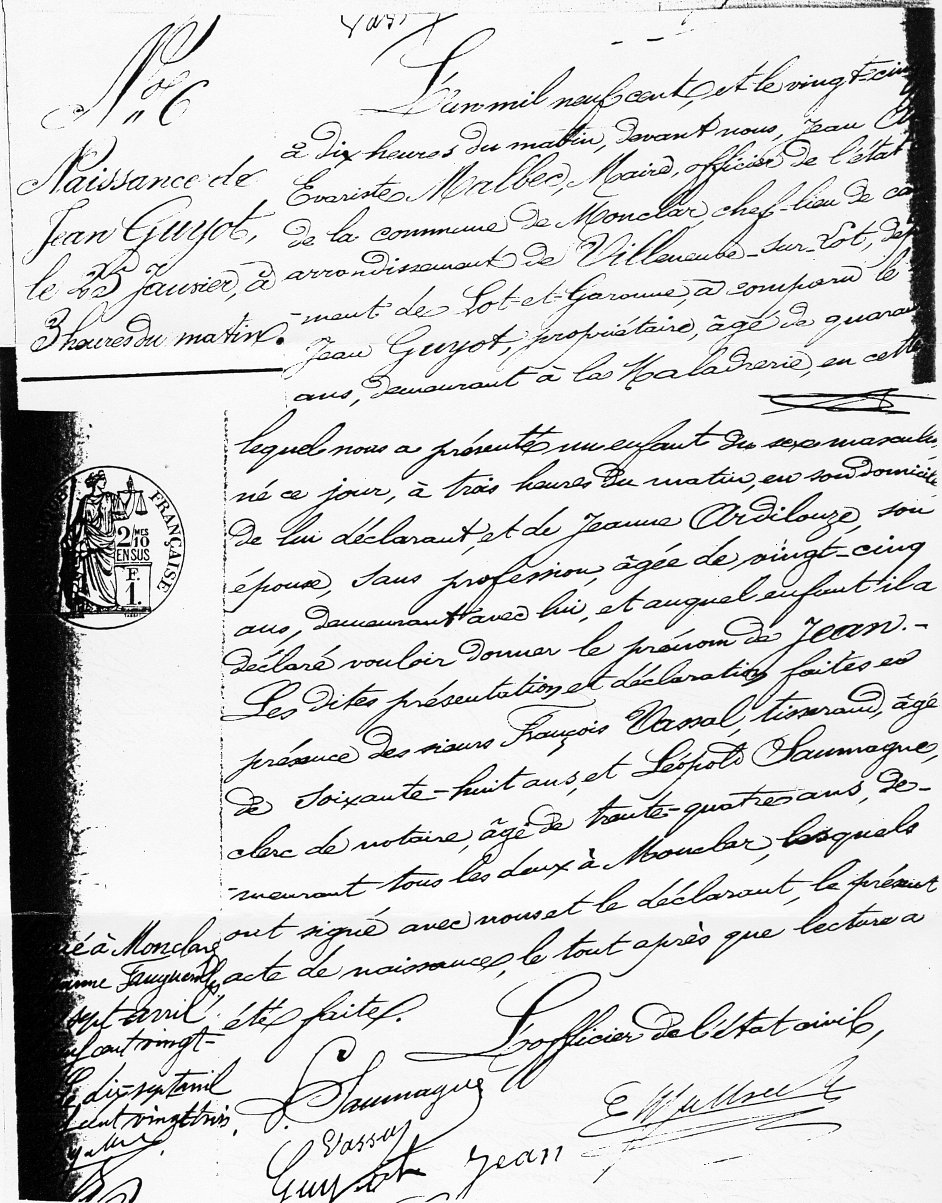 N° 6
Naissance de
Jean Guyot,
le 25 Janvier, à
3 heures du matin.
L'an mil neuf cent, et le vingt-cin
à dix heures du matin, devant nous, Jean
Evariste Malbec, Maire, officier de l'état
de la commune de Monclar, chef-lieu de ca
arrondissement de Villeneuve-sur-Lot, dép
-ment de Lot-et-Garonne, a comparu le
Jean Guyot, propriétaire, âgé de quaran
ans, demeurant à la Maladrerie, en cette
lequel nous a présenté un enfant du sexe masculin,
né ce jour, à trois heures du matin, en son domicile
de lui déclarant, et de Jeanne Ardilouze, son
épouse, sans profession, âgée de vingt-cinq
ans, demeurant avec lui, et auquel enfant il a
déclaré vouloir donner le prénom de Jean.-
Les dites présentation et déclaration faites en
présence des sieurs François Vassal, tisserand, âgé
de soixante-huit ans, et Léopold Saumagne,
clerc de notaire, âgé de trente-quatre ans, de-
-meurant tous les deux à Monclar, lesquels
ont signé avec nous et le déclarant, le présent
acte de naissance, le tout après que lecture a
été faite.
L'officier de l'état civil,
L. Saumagne
Vassal
Guyot Jean
E Malbec
FRANÇAISE
2/10 MES
EN SUS
F.
1.
à Monclar
sept avril
cent vingt-
dix-sept avril
cent vingt trois